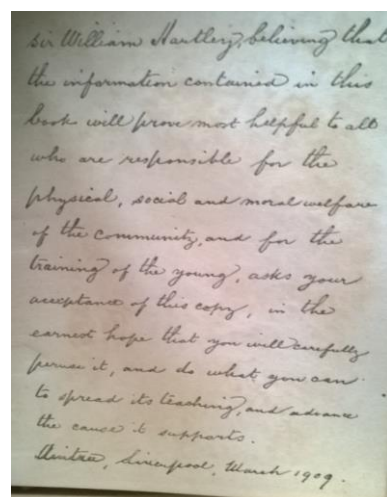 Sir William Hartley, believing that
the information contained in this
book will prove most helpful to all
who are responsible for the
physical, social and moral welfare
of the community, and for the
training of the young, asks your
acceptance of this copy, in the
earnest hope that you will carefully
peruse it, and do what you can
to spread its teaching, and advance
the cause it supports.
Aintree, Liverpool, March 1909.